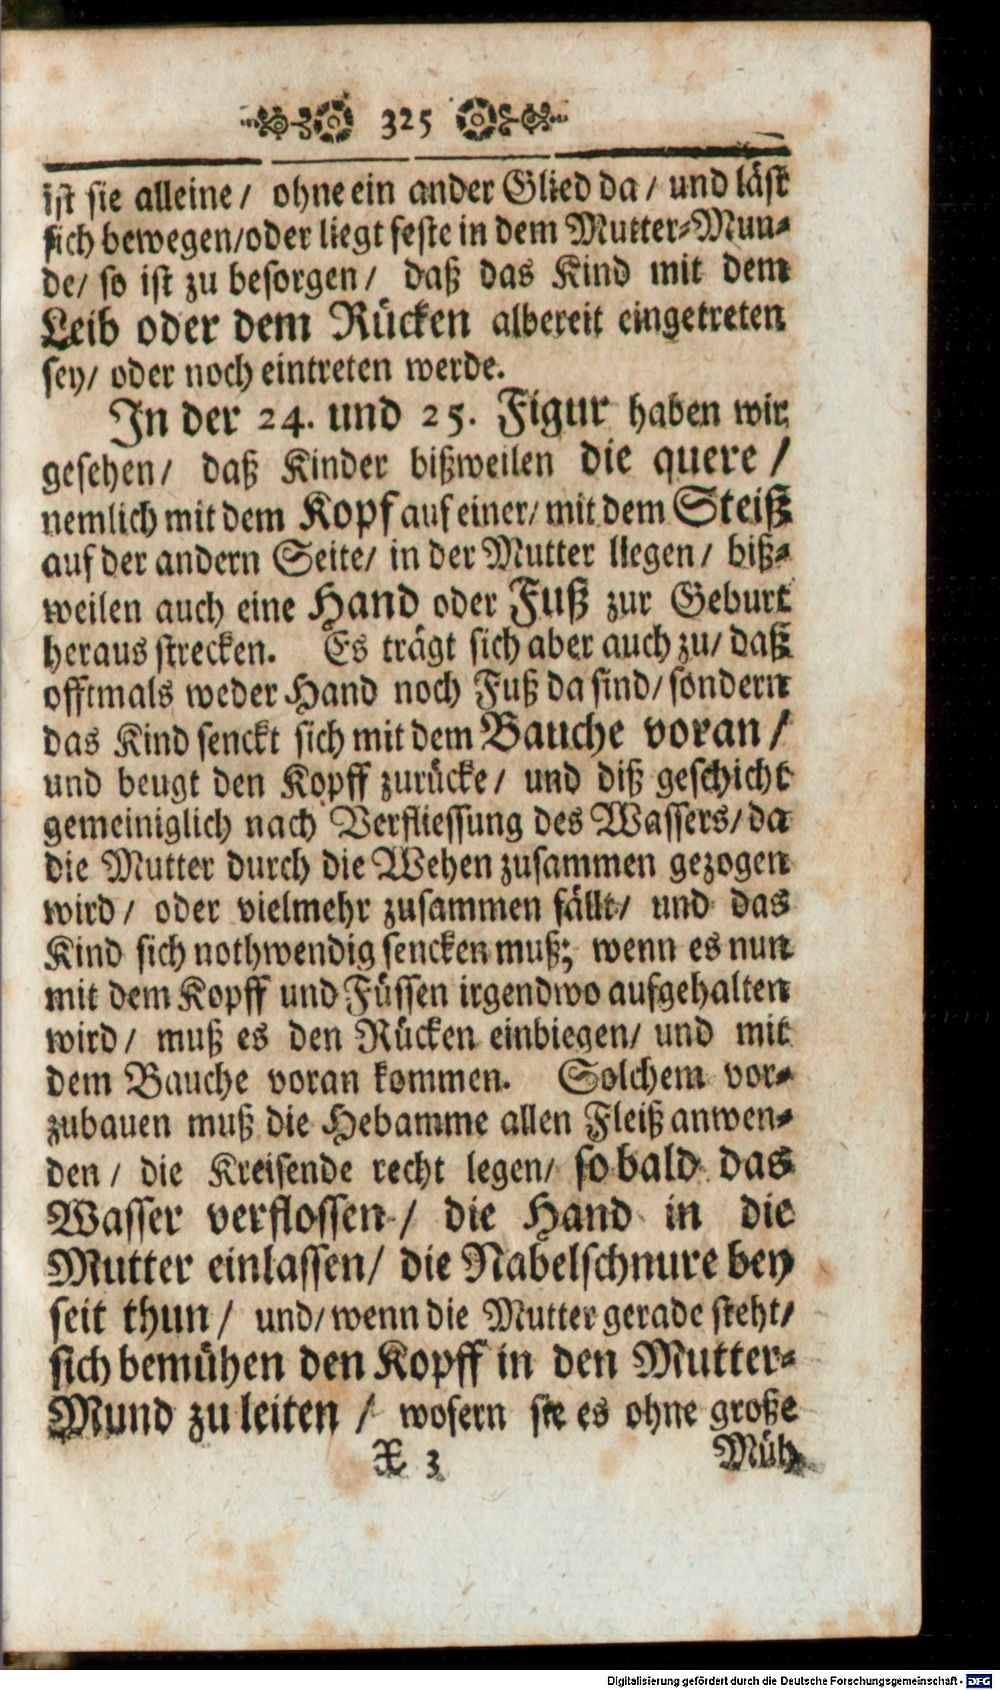 325
ist sie alleine/ ohne ein ander Glied da/ und läst
sich bewegen/oder liegt feste in dem Mutter-Mun-
de/ so ist zu besorgen/ daß das Kind mit dem
Leib oder dem Rücken albereit eingetreten
sey/ oder noch eintreten werde.
In der 24. und 25. Figur haben wir
gesehen/ daß Kinder bißweilen die quere/
nemlich mit dem Kopf auf einer/ mit dem Steiß
auf der andern Seite/ in der Mutter liegen/ biß-
weilen auch eine Hand oder Fuß zur Geburt
heraus strecken. Es trägt sich aber auch zu/ daß
offtmals weder Hand noch Fuß da sind/ sondern
das Kind senckt sich mit dem Bauche voran/
und beugt den Kopff zurücke/ und diß geschicht
gemeiniglich nach Verfliessung des Wassers/ da
die Mutter durch die Wehen zusammen gezogen
wird/ oder vielmehr zusammen fällt/ und das
Kind sich nothwendig sencken muß; wenn es nun
mit dem Kopff und Füssen irgendwo aufgehalten
wird/ muß es den Rücken einbiegen/ und mit
dem Bauche voran kommen. Solchem vor-
zubauen muß die Hebamme allen Fleiß anwen-
den/ die Kreisende recht legen/ so bald das
Wasser verflossen/ die Hand in die
Mutter einlassen/ die Nabelschnure bey
seit thun/ und/ wenn die Mutter gerade steht/
sich bemühen den Kopff in den Mutter-
Mund zu leiten/ wofern sie es ohne große
X 3 Müh
Digitalisierung gefördert durch die Deutsche Forschungsgemeinschaft - DFG